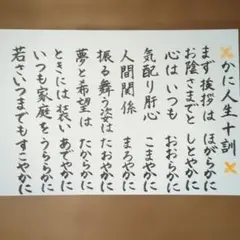 かに人生十訓
まず挨拶は ほがらかに
お陰さまでと しとやかに
心は いつも おおらかに
気配り肝心 こまやかに
人間関係 まろやかに
振る舞う姿は たおやかに
夢と希望は たからかに
ときには 装い あでやかに
いつも家庭を うららかに
若さいつまでも すこやかに